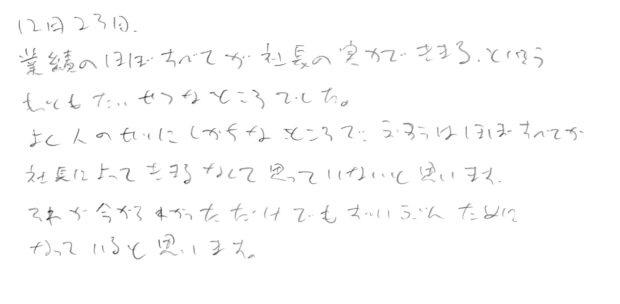 12月23日.
業績のほぼすべてが社長の実力できまる、という
もっともたいせつなところでした。
よく人のせいにしがちなところで、えきうはほぼすべてが
社長によってきまるなんて思っていないと思います.
これが今からわかっただけでもずいぶんために
なっていると思います。